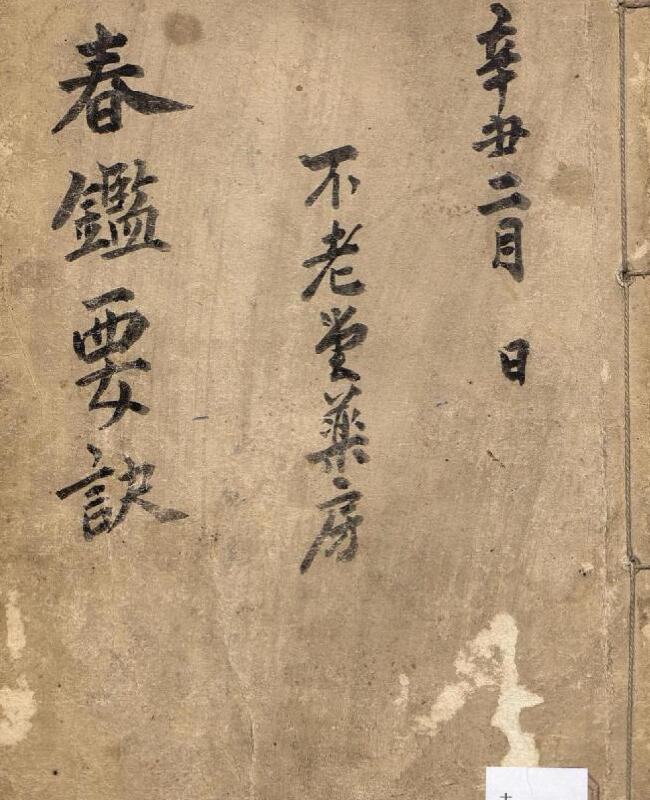 辛丑二月 日
不老堂藥房
春鑑要訣